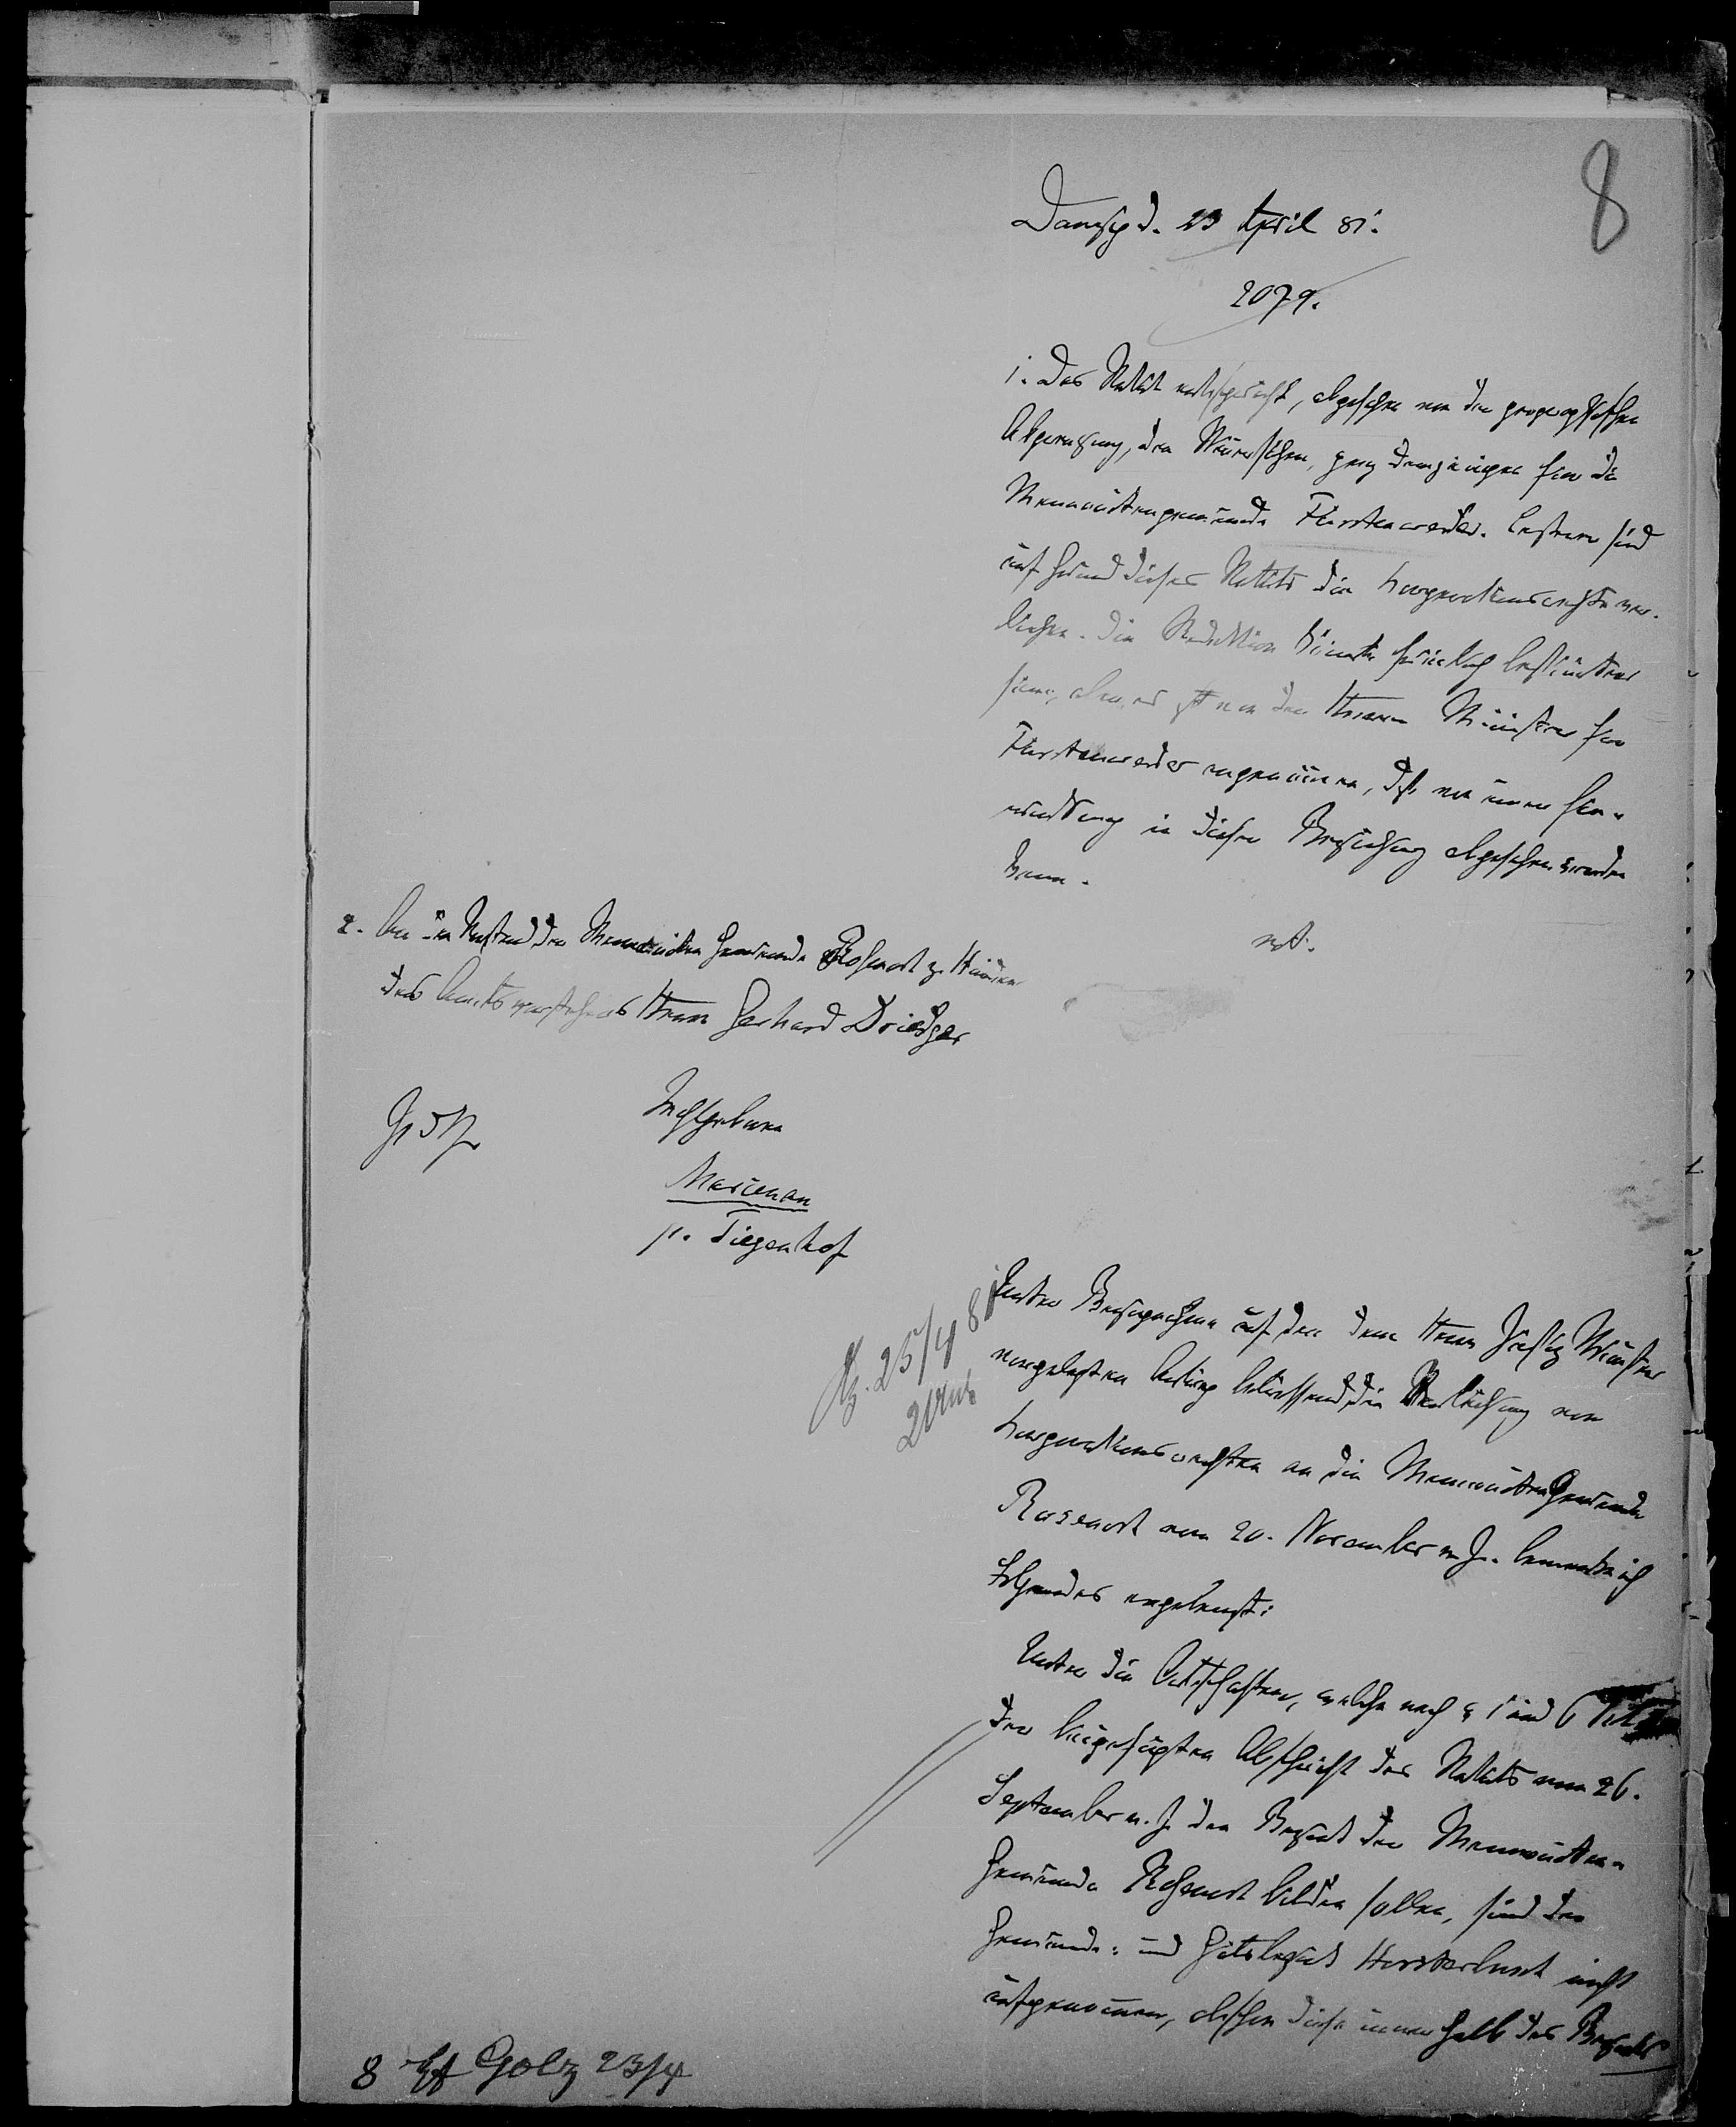 8
Danzig d. 23 April 81.
2079.
1. Das Statut entspricht, abgesehen von der geographischen
Abgrenzung, den Wünschen, ganz demjenigen für die
Mennonitengemeinde Fürstenwerder. Letzterer sind
auf Grund dieses Statuts die Korporationsrechte ver-
liehen. Die Redaktion könnte hin und wieder
sein, aber es ist von den Herren Ministern für
Fürstenwerder angenommen, daß von einer
in dieser Beziehung abgesehen werden
kann.
2. An den Vorstand der Mennoniten Gemeinde Rosenort z. Händen
des Amtsvorstehers Herrn Gerhard Driedger
Hochgeboren
Marienau
p. Tiegenhof
25/4 81
Unter Bezugnahme auf den dem Herrn Justiz Minister
vorgelegten Antrag betreffend die Verleihung von
Korporationsrechten an die Mennoniten Gemeinde
Rosenort vom 20. November v. J. bemerke ich
Folgendes ergebenst:
Unter die Ortschaften, welche nach § 1 und 6
der beigefügten Abschrift des Statuts vom 26.
September v. J. den Bezirk der Mennoniten-
Gemeinde Rosenort bilden sollen, sind der
Gemeinde- und Gutsbezirk Horsterbusch nicht
aufgenommen, obschon diese innerhalb des Bezirks
8 Golz 23/4